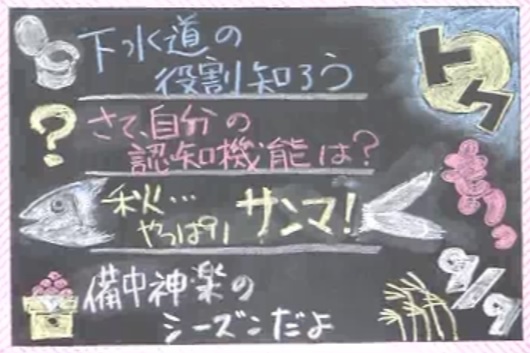 下水道の
役割知ろう
さて、自分の
認知機能は？
秋…
やっぱり サンマ！
備中神楽の
シーズンだよ
トク
もりっ
9/9